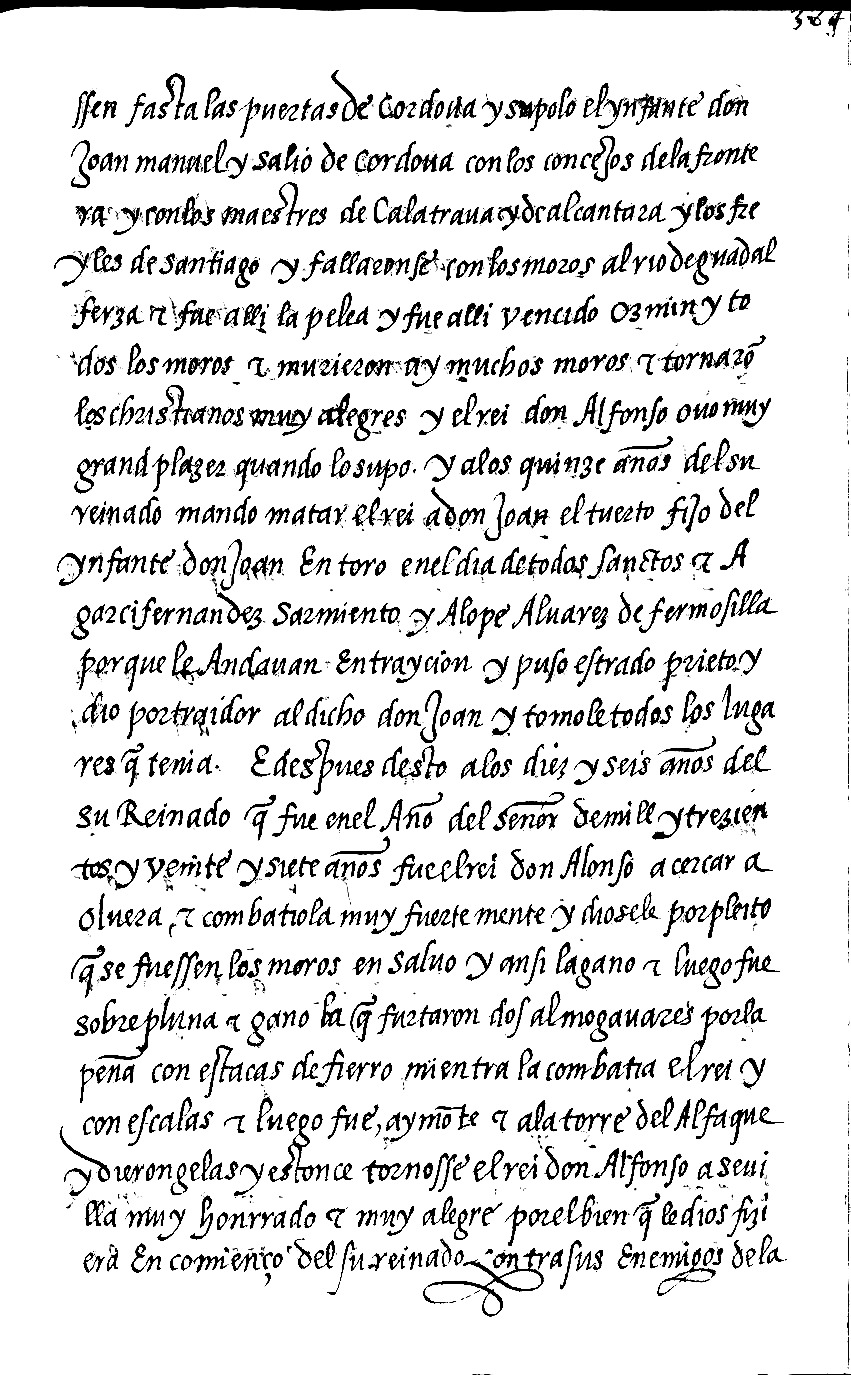 364
ssen fasta las puertas de Cordoua y supolo el ynfante don
Joan manuel y salio de cordoua con los concejos de la fronte
ra y con los maestres de Calatraua y de alcantara y los fre
yles de santiago y fallaronse con los moros al rio de guadal
ferza & fue alli la pelea y fue alli vencido Ozmin y to
dos los moros & murieron ay muchos moros & tornarõ
los christianos muy alegres y el rei don Alfonso ouo muy
grand plazer quando lo supo. y a los quinze años del su
reinado mando matar el rei a don Joan el tuerto fijo del
ynfante don Joan En toro en el dia de todos sanctos & A
garcifernandez Sarmiento y A lope Alvarez de fermosilla
porque le Andauan En traycion y puso estrado prieto y
dio por traidor al dicho don Joan y tomole todos los luga
res q̃ tenia. E despues desto a los diez y seis años del
su Reinado q̃ fue en el Año del señor de mill y trezien
tos y veinte y siete años fue el rei don Alonso a cercar a
Oluera, & combatiola muy fuertemente y diosele por pleito
q̃ se fuessen los moros en saluo y ansi la gano & luego fue
sobre pluna & gano la q̃ furtaron dos almogauares por la
peña con estacas de fierro mientra la combatia el rei y
con escalas & luego fue, aymõte & a la torre del Alfaque
y dierongelas y estonce tornosse el rei don Alfonso a seui
lla muy honrrado & muy alegre por el bien q̃ le dios fizi
era En comienço del su reinado contra sus Enemigos de la